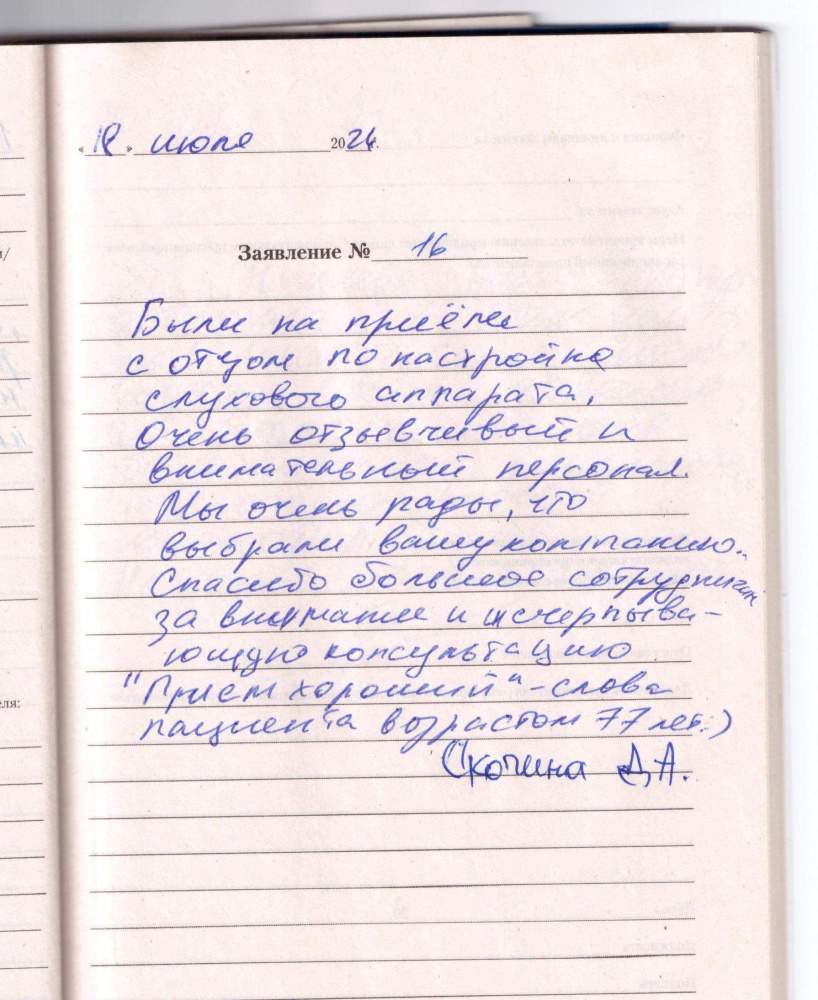 «18» июля 2024 г.
Заявление № 16
Были на приёме
с отцом по настройке
слухового аппарата,
Очень отзывчивый и
внимательный персонал.
Мы очень рады, что
выбрали вашу компанию..
Спасибо большое сотрудникам
за внимание и исчерпыва-
ющую консультацию
"Прием хороший" - слова
пациента возрастом 77 лет.)
Скочина Д.А.
еля: